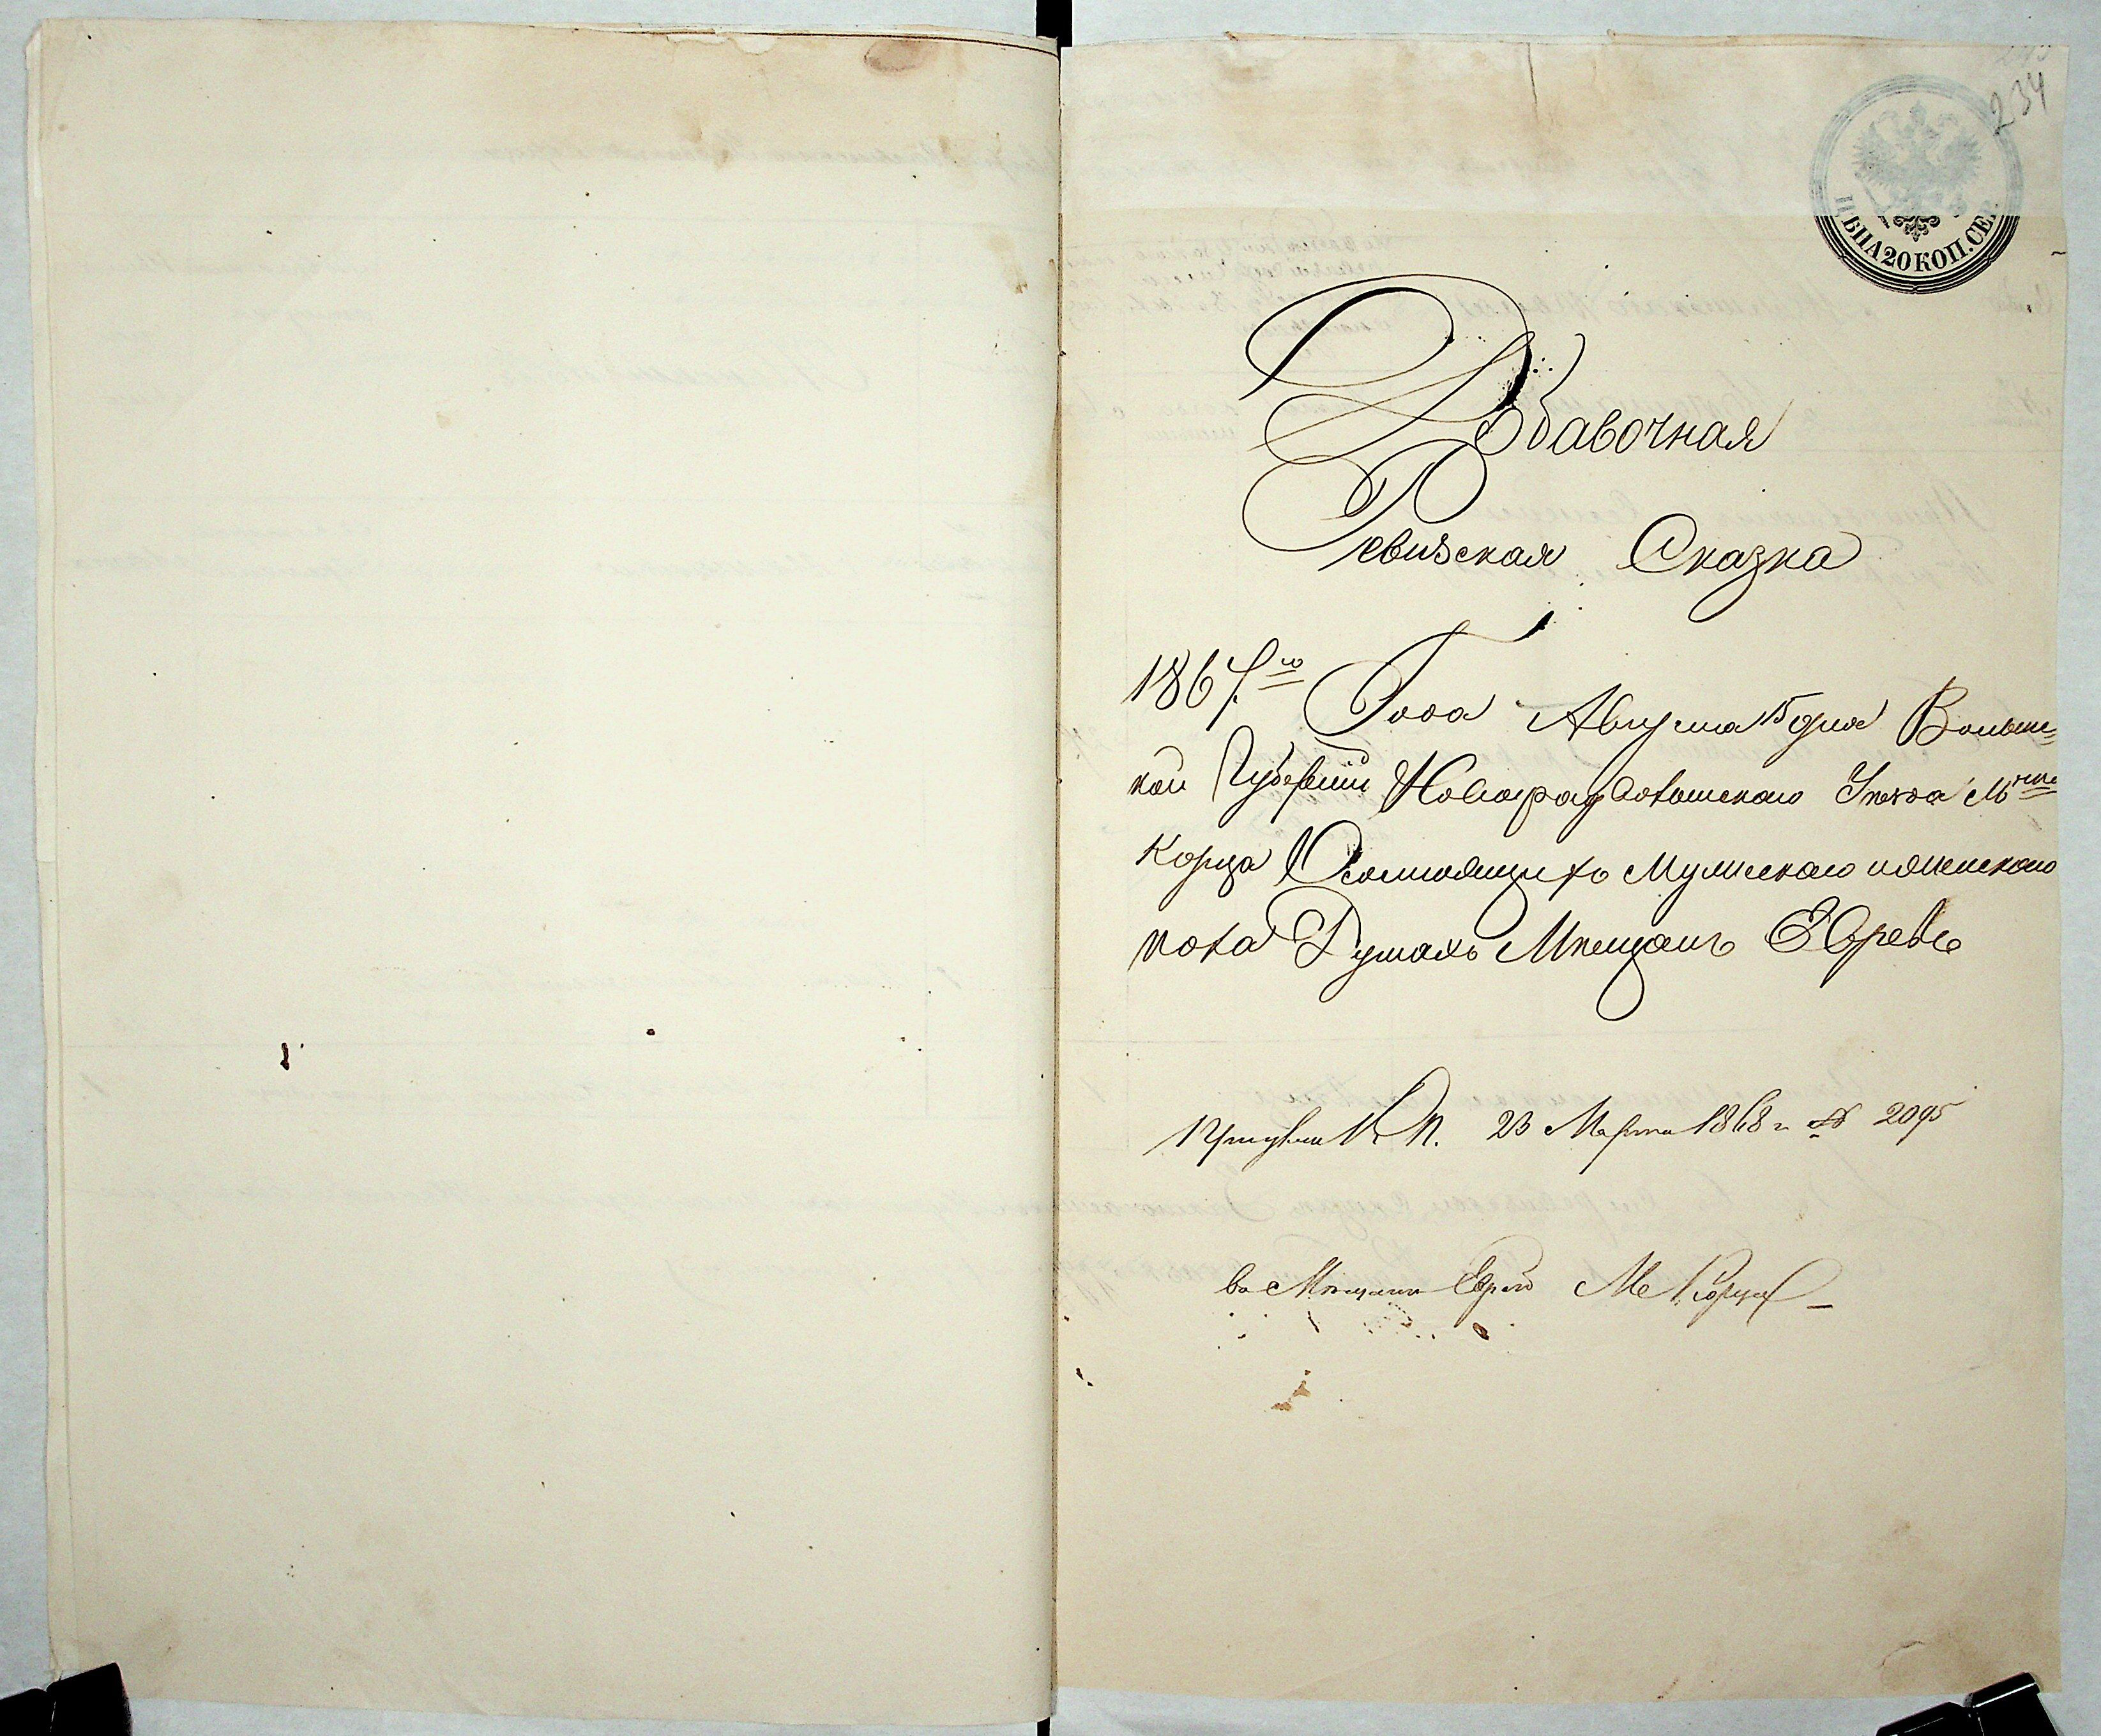 234
ЦѢНА 20 КОП. СЕР.
Добавочная
Ревизская Сказка
1867го Года Августа 15 дня Волынс=
кой Губернiи Новоградволынского Уезда Мчка
Корца О состоящихъ Мужескаго и женскаго
пола Душахъ Мещанъ Евреевъ
К. П. 23 Марта 1868 г. № 2095
въ Мещане Евреи Ме Корца –